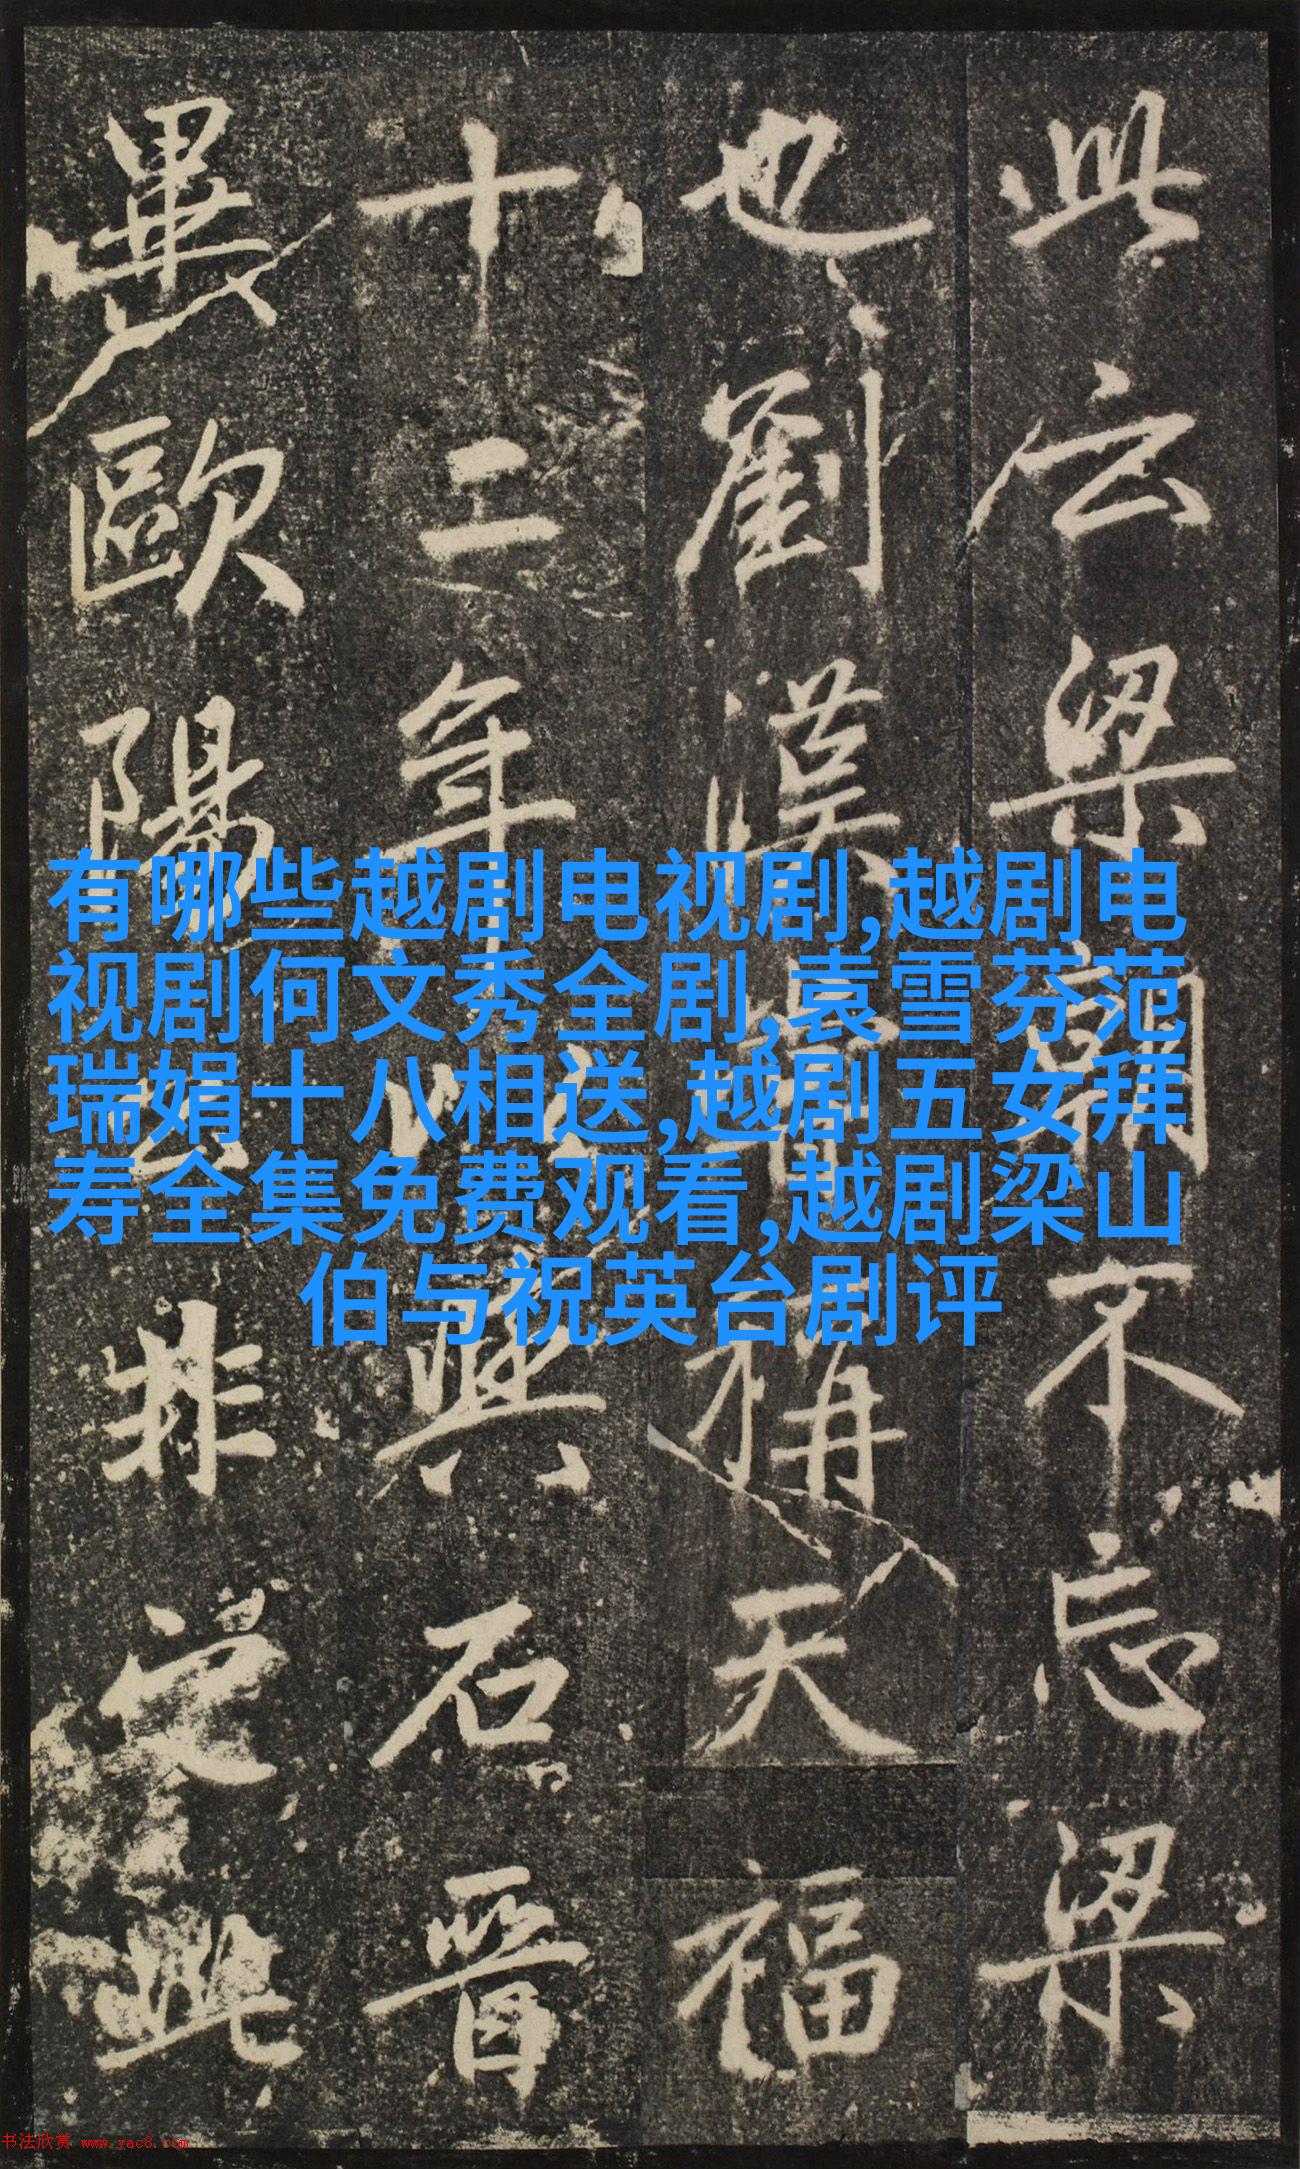 此云梁不忘梁
也劉漢稱天福
十二年以興石晉
畢歐陽公非此
有哪些越剧电视剧,越剧电
视剧何文秀全剧,袁雪芬范
瑞娟十八相送,越剧五女拜
寿全集免费观看,越剧梁山
伯与祝英台剧评
书法欣赏 www.yac8.com